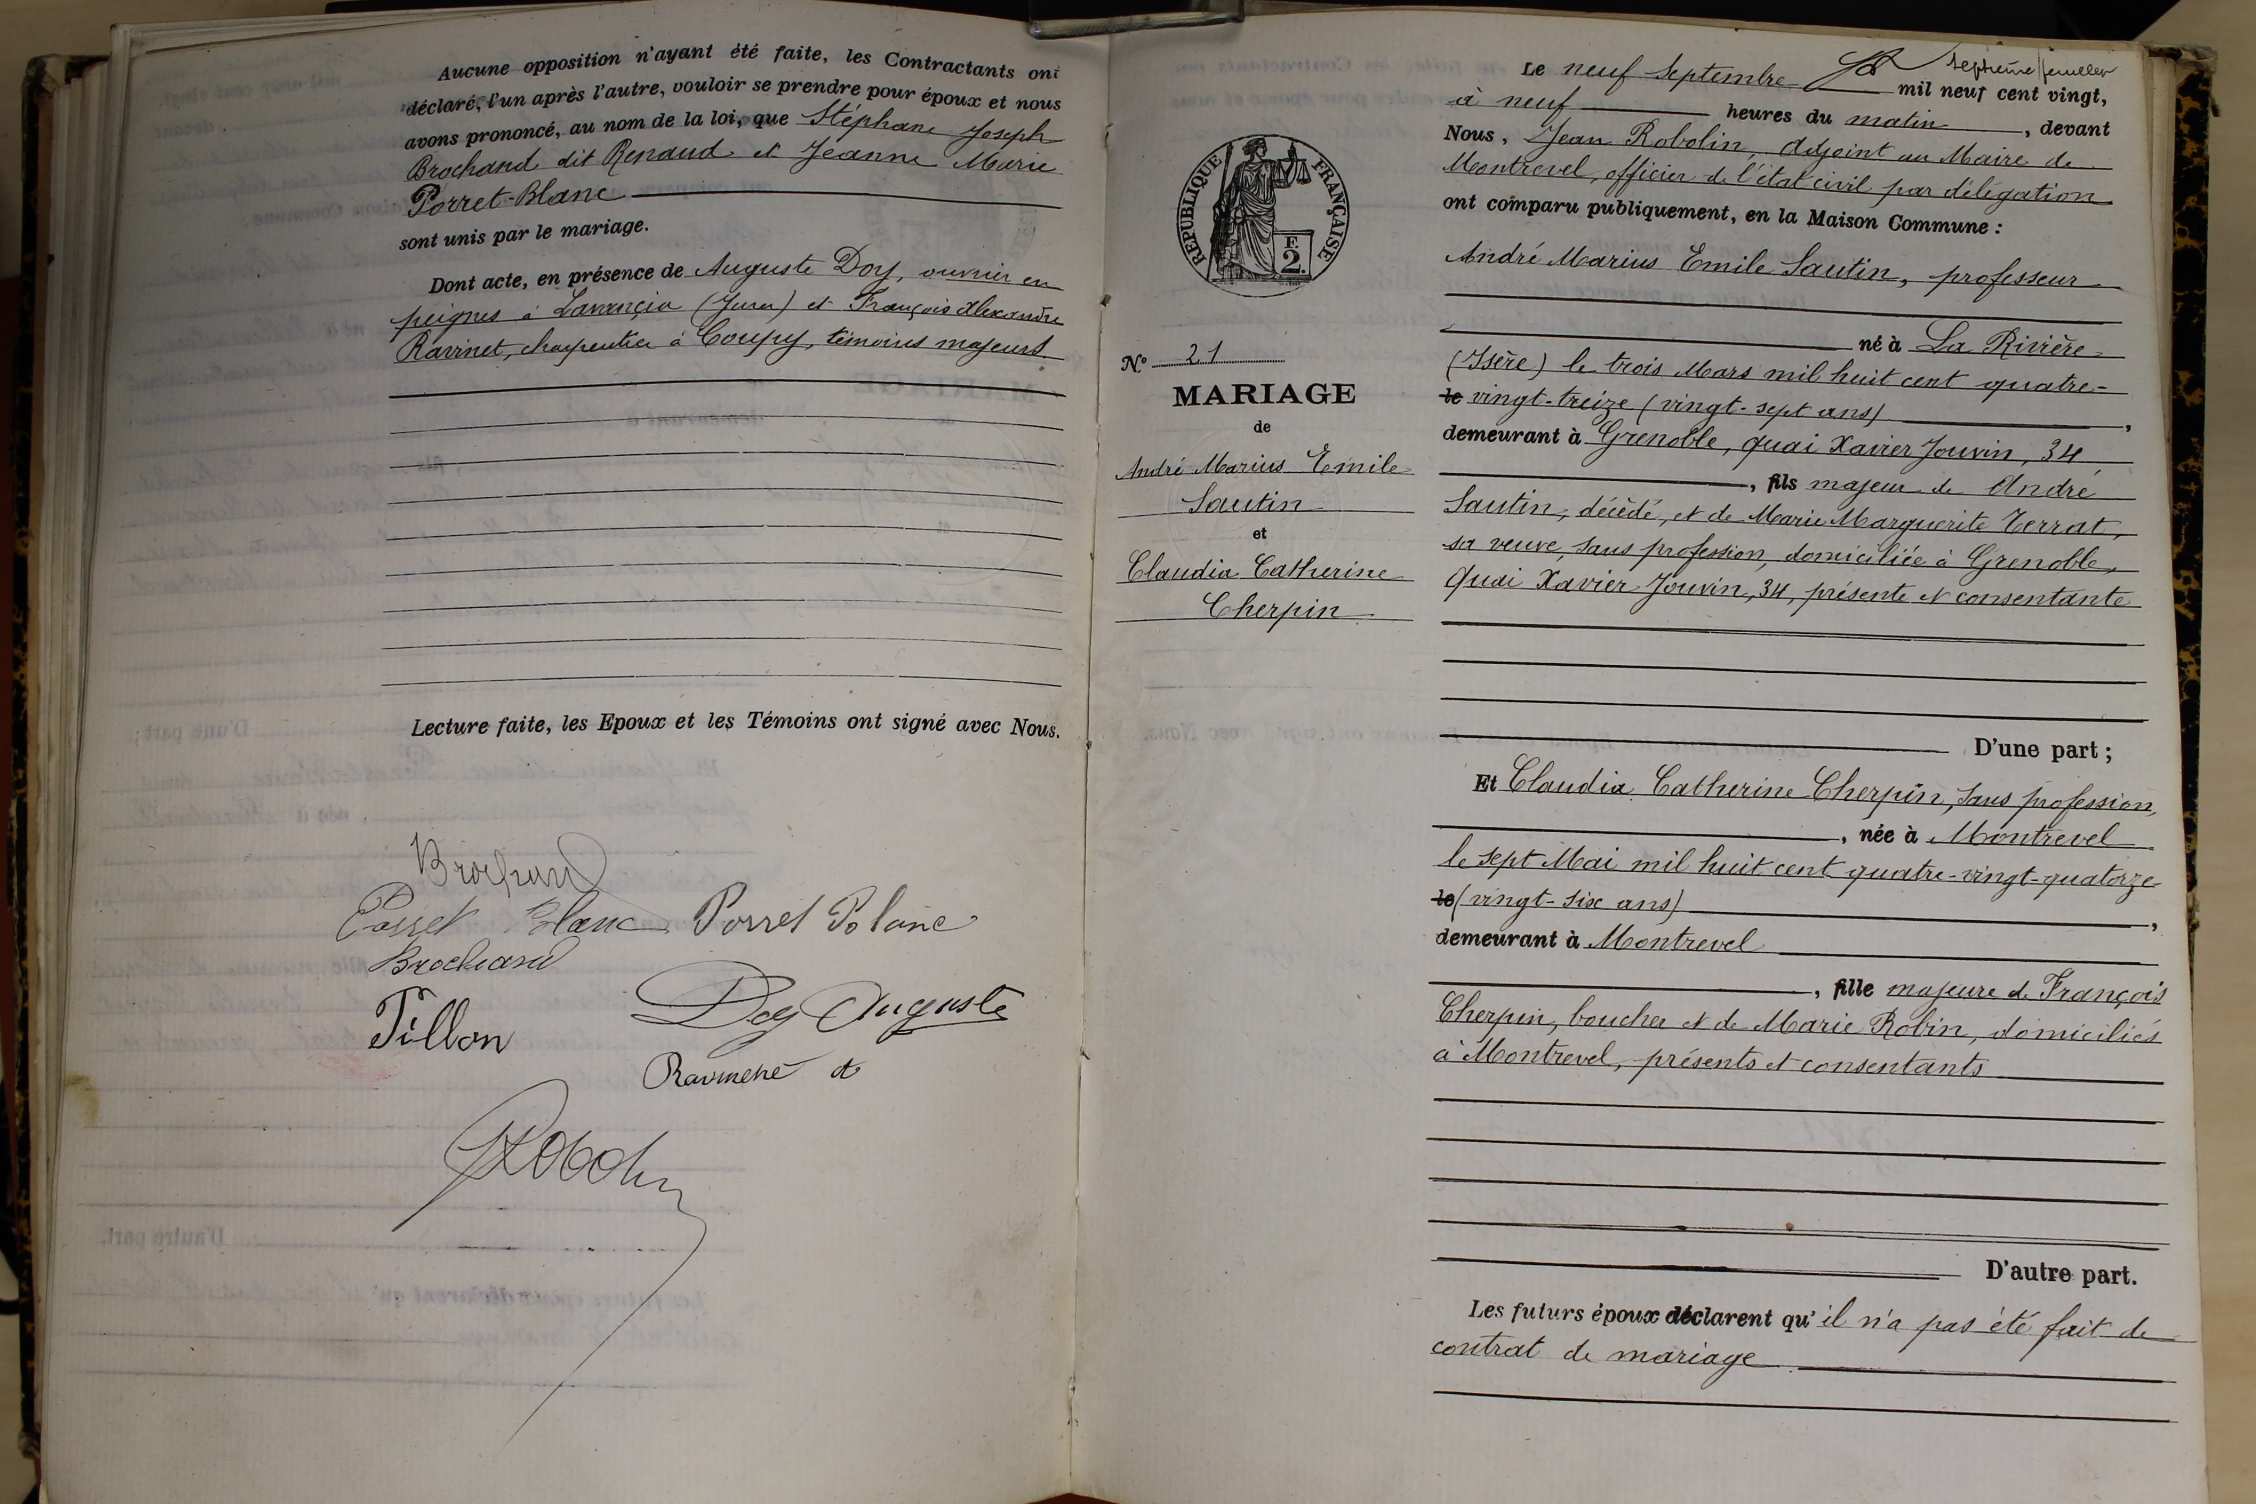 Aucune opposition n'ayant été faite, les Contractants ont
déclaré, l'un après l'autre, vouloir se prendre pour époux et nous
avons prononcé, au nom de la loi, que Stéphane Joseph
Brochand dit Renaud et Jeanne Marie
Porret-Blanc
sont unis par le mariage.
Dont acte, en présence de Auguste Doy, ouvrier en
peignes à Lavancia (Jura) et François Alexandre
Ravinet, charpentier à Coupy, témoins majeurs
Lecture faite, les Epoux et les Témoins ont signé avec Nous.
Brochand
Porret Blanc Porret Blanc
Brochand
Doy Auguste
Tillon
J Robolin
REPUBLIQUE FRANÇAISE
F.
2.
N° 21
MARIAGE
de
André Marius Emile
Sautin
et
Claudia Catherine
Cherpin
septième feuillet
Le neuf Septembre mil neuf cent vingt,
à neuf heures du matin, devant
Nous, Jean Robolin, adjoint au Maire de
Montrevel, officier de l'état civil par délégation
ont comparu publiquement, en la Maison Commune :
André Marius Emile Sautin, professeur
né à La Rivière
(Isère) le trois Mars mil huit cent quatre-
le vingt-treize (vingt-sept ans),
demeurant à Grenoble, quai Xavier Jouvin, 34
, fils majeur de André
Sautin, décédé, et de Marie Marguerite Terrat,
sa veuve, sans profession, domiciliée à Grenoble,
Quai Xavier Jouvin, 34, présente et consentante
D'une part ;
Et Claudia Catherine Cherpin, sans profession,
, née à Montrevel
le sept Mai mil huit cent quatre-vingt-quatorze
le (vingt-six ans),
demeurant à Montrevel
, fille majeure de François
Cherpin, boucher et de Marie Robin, domiciliés
à Montrevel, présents et consentants
D'autre part.
Les futurs époux déclarent qu'il n'a pas été fait de
contrat de mariage